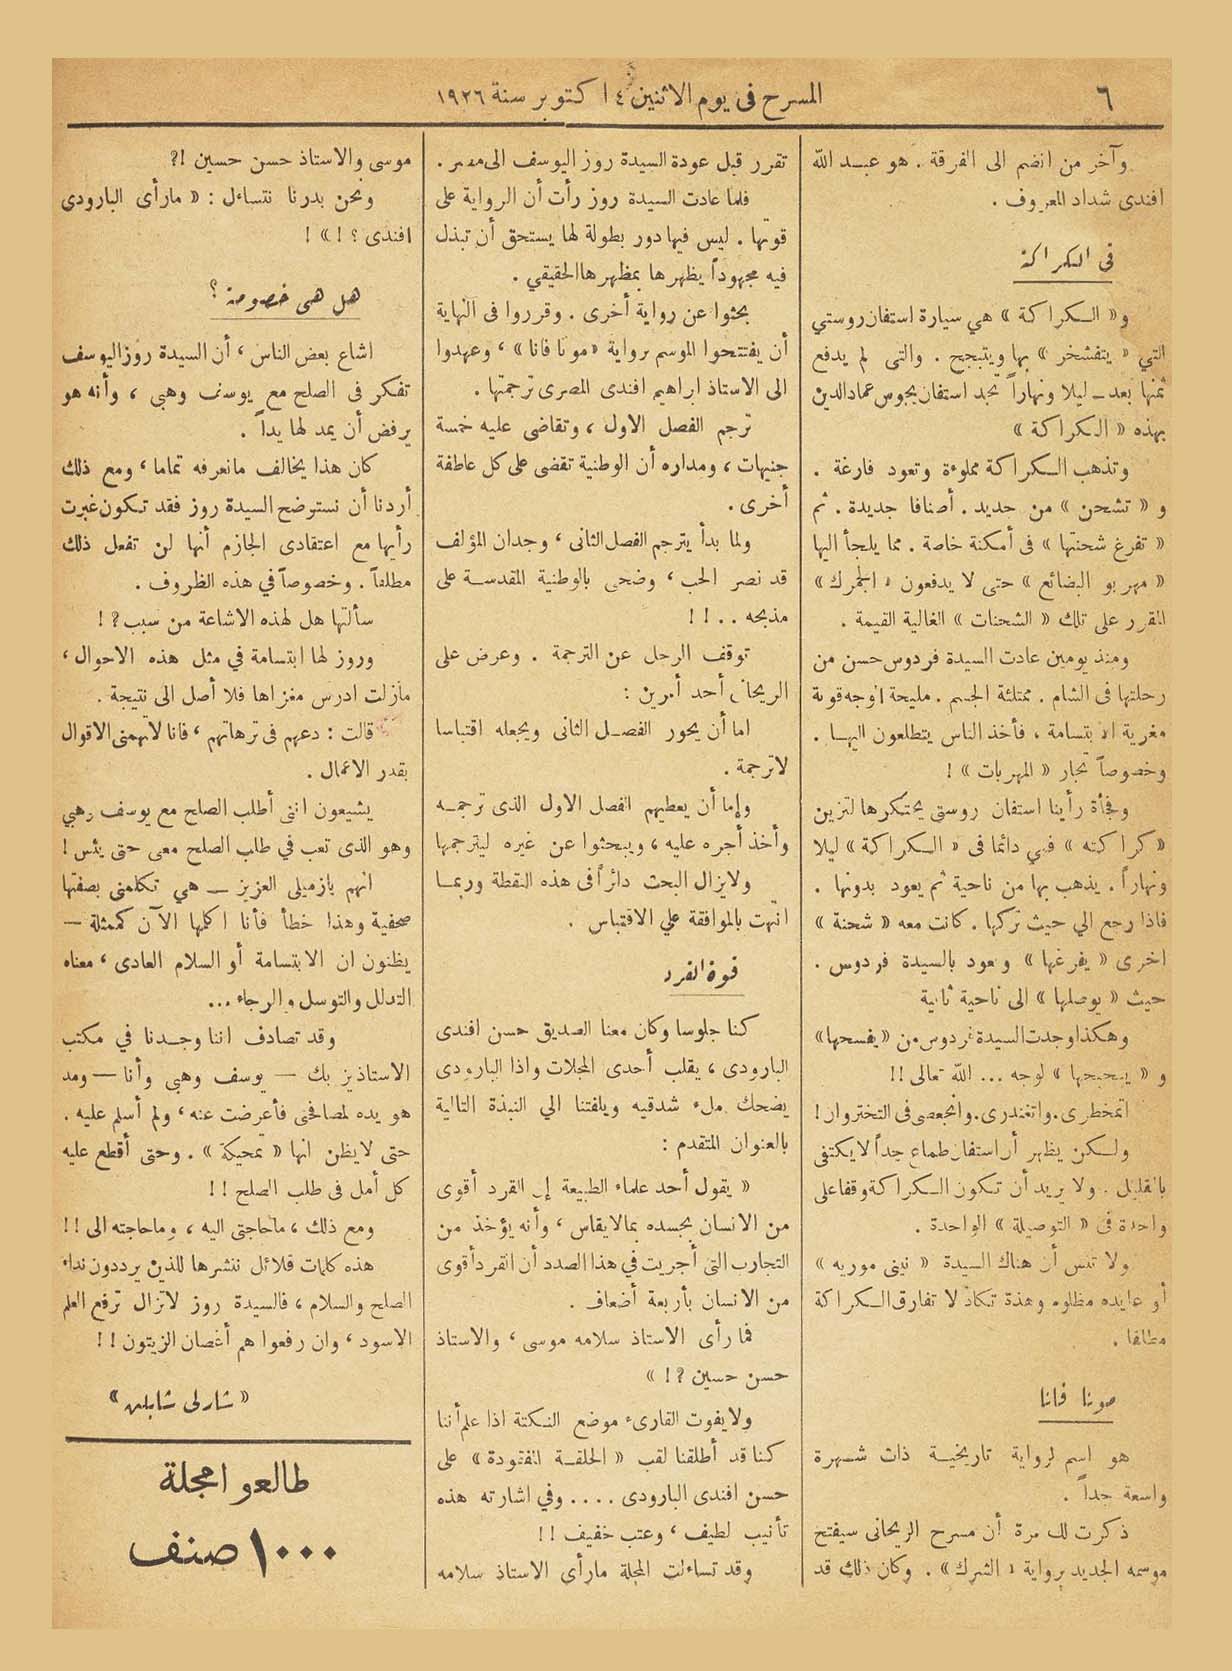 ٦
المسرح فى يوم الاثنين ٤ اكتوبر سنة ١٩٢٦
وآخر من انضم الى الفرقة . هو عبد الله
افندى شداد المعروف .
فى الكراكة
و« الكراكة » هي سيارة استفان روستي
التي « يتفشخر » بها ويتبجح . والتى لم يدفع
ثمنها بعد ــ ليلا ونهاراً تجد استفان يجوس عماد الدين
بهذه « الكراكة »
وتذهب الكراكة مملوءة وتعود فارغة .
و « تشحن » من جديد . أصنافا جديدة . ثم
« تفرغ شحنتها » فى أمكنة خاصة . مما يلجأ اليها
« مهربو البضائع » حتى لا يدفعون « الجمرك »
المقرر على تلك « الشحنات » الغالية القيمة .
ومنذ يومين عادت السيدة فردوس حسن من
رحلتها فى الشام . ممتلئة الجسم . مليحة الوجه قوية
مغرية الابتسامة ، فأخذ الناس يتطلعون اليها .
وخصوصاً تجار « المهربات » !
وفجأة رأينا استفان روستى يحتكرها لتزين
« كراكته » فهي دائما فى « الكراكة » ليلا
ونهاراً . يذهب بها من ناحية ثم يعود بدونها .
فاذا رجع الي حيث تركها . كانت معه « شحنة »
اخرى « يفرغها » وبعود بالسيدة فردوس .
حيث « يوصلها » الى ناحية ثانية
وهكذا وجدت السيدة فردوس من « يفسحها»
و « يبحبحها » لوجه ... الله تعالى !!
اتمخطرى . واتغندرى . وانجعصى فى التختروان !
ولكن يظهر أن استفان طماع جداً لا يكتفى
بالقليل . ولا يريد أن تكون الكراكة وقفا على
واحدة فى « التوصيلة » الواحدة .
ولا تنس أن هناك السيدة « نينى موريه »
أو عايده مظلوم وهذة تكاد لا تفارق الكراكة
مطلقا .
مونا فانا
هو اسم لرواية تاريخية ذات شهرة
واسعة جداً .
ذكرت لك مرة أن مسرح الريحانى سيفتح
موسمه الجديد برواية « الشرك » . وكان ذلك قد
تقرر قبل عودة السيدة روز اليوسف الى مصر .
فلما عادت السيدة روز رأت أن الرواية على
قوتها . ليس فيها دور بطولة لها يستحق أن تبذل
فيه مجهوداً يظهرها بمظهرها الحقيقي .
بحثوا عن رواية أخرى . وقرروا فى النهاية
أن يفتتحوا الموسم برواية « مونا فانا » ، وعهدوا
الى الاستاذ ابراهيم افندى المصرى ترجمتها .
ترجم الفصل الاول ، وتقاضى عليه خمسة
جنيهات ، ومداره أن الوطنية تقضى على كل عاطفة
أخرى .
ولما بدأ يترجم الفصل الثانى ، وجد ان المؤلف
قد نصر الحب ، وضحى بالوطنية المقدسة على
مذبحه . . ! !
توقف الرجل عن الترجمة . وعرض على
الريحانى أحد أمرين :
اما أن يحور الفصل الثانى ويجعله اقتباسا
لا ترجمة .
وإما أن يعطيهم الفصل الاول الذى ترجمه
وأخذ أجره عليه ، ويبحثوا عن غيره ليترجمها
ولا يزال البحث دائراً فى هذه النقطة وربما
انتهت بالموافقة علي الاقتباس .
قوة القرد
كنا جلوسا وكان معنا الصديق حسن افندى
البارودى ، يقلب أحدى المجلات واذا البارودى
يضحك ملء شدقيه ويلفتنا الي النبذة التالية
بالعنوان المتقدم :
« يقول أحد علماء الطبيعة إن القرد أقوى
من الانسان بجسده بما لا يقاس ، وأنه يؤخذ من
التجارب التى أجريت في هذا الصدد أن القرد أقوى
من الانسان بأربعة أضعاف .
فما رأى الاستاذ سلامه موسى ، والاستاذ
حسن حسين ؟ ! »
ولا يفوت القارىء موضع النكتة اذا علم أننا
كنا قد أطلقنا لقب « الحلقة المفقودة » على
حسن افندى البارودى .... وفي اشارته هذه
تأنيب لطيف ، وعتب خفيف !!
وقد تساءلت المجلة ما رأى الاستاذ سلامه
موسى والاستاذ حسن حسين !؟
ونحن بدرنا نتساءل : « ما رأى البارودى
افندى ؟ ! » !
هل هى خصومة ؟
اشاع بعض الناس ، أن السيدة روز اليوسف
تفكر فى الصلح مع يوسف وهبي ، وأنه هو
يرفض أن يمد لها يداً .
كان هذا يخالف ما نعرفه تماما ، ومع ذلك
أردنا أن نستوضح السيدة روز فقد تكون غيرت
رأيها مع اعتقادى الجازم أنها لن تفعل ذلك
مطلقاً . وخصوصاً في هذه الظروف .
سألتها هل لهذه الاشاعة من سبب ؟ !
وروز لها ابتسامة في مثل هذه الاحوال ،
مازلت ادرس مغزاها فلا أصل الى نتيجة .
قالت : دعهم فى ترهاتهم ، فانا لا تهمنى الاقوال
بقدر الاعمال .
يشيعون اننى أطلب الصلح مع يوسف وهبي
وهو الذى تعب في طلب الصلح معى حتى يئس !
انهم يا زميلى العزيز ــ هي تكلمنى بصفتها
صحفية وهذا خطأ فأنا اكلمها الآن كممثلة ــ
يظنون ان الابتسامة أو السلام العادى ، معناه
التدلل والتوسل والرجاء ...
وقد تصادف اننا وجدنا في مكتب
الاستاذ يز بك ــ يوسف وهبي وأنا ــ ومد
هو يده لمصافحتى فأعرضت عنه ، ولم أسلم عليه .
حتى لا يظن انها « تمحيكة » . وحتى أقطع عليه
كل أمل فى طلب الصلح !!
ومع ذلك ، ما حاجتى اليه ، وما حاجته الى !!
هذه كلمات قلائل ننشرها للذين يرددون نداء
الصلح والسلام ، فالسيدة روز لا تزال ترفع العلم
الاسود ، وان رفعوا هم أغصان الزيتون !!
« شارلى شابلن »
طالعوا مجلة
١٠٠٠ صنف